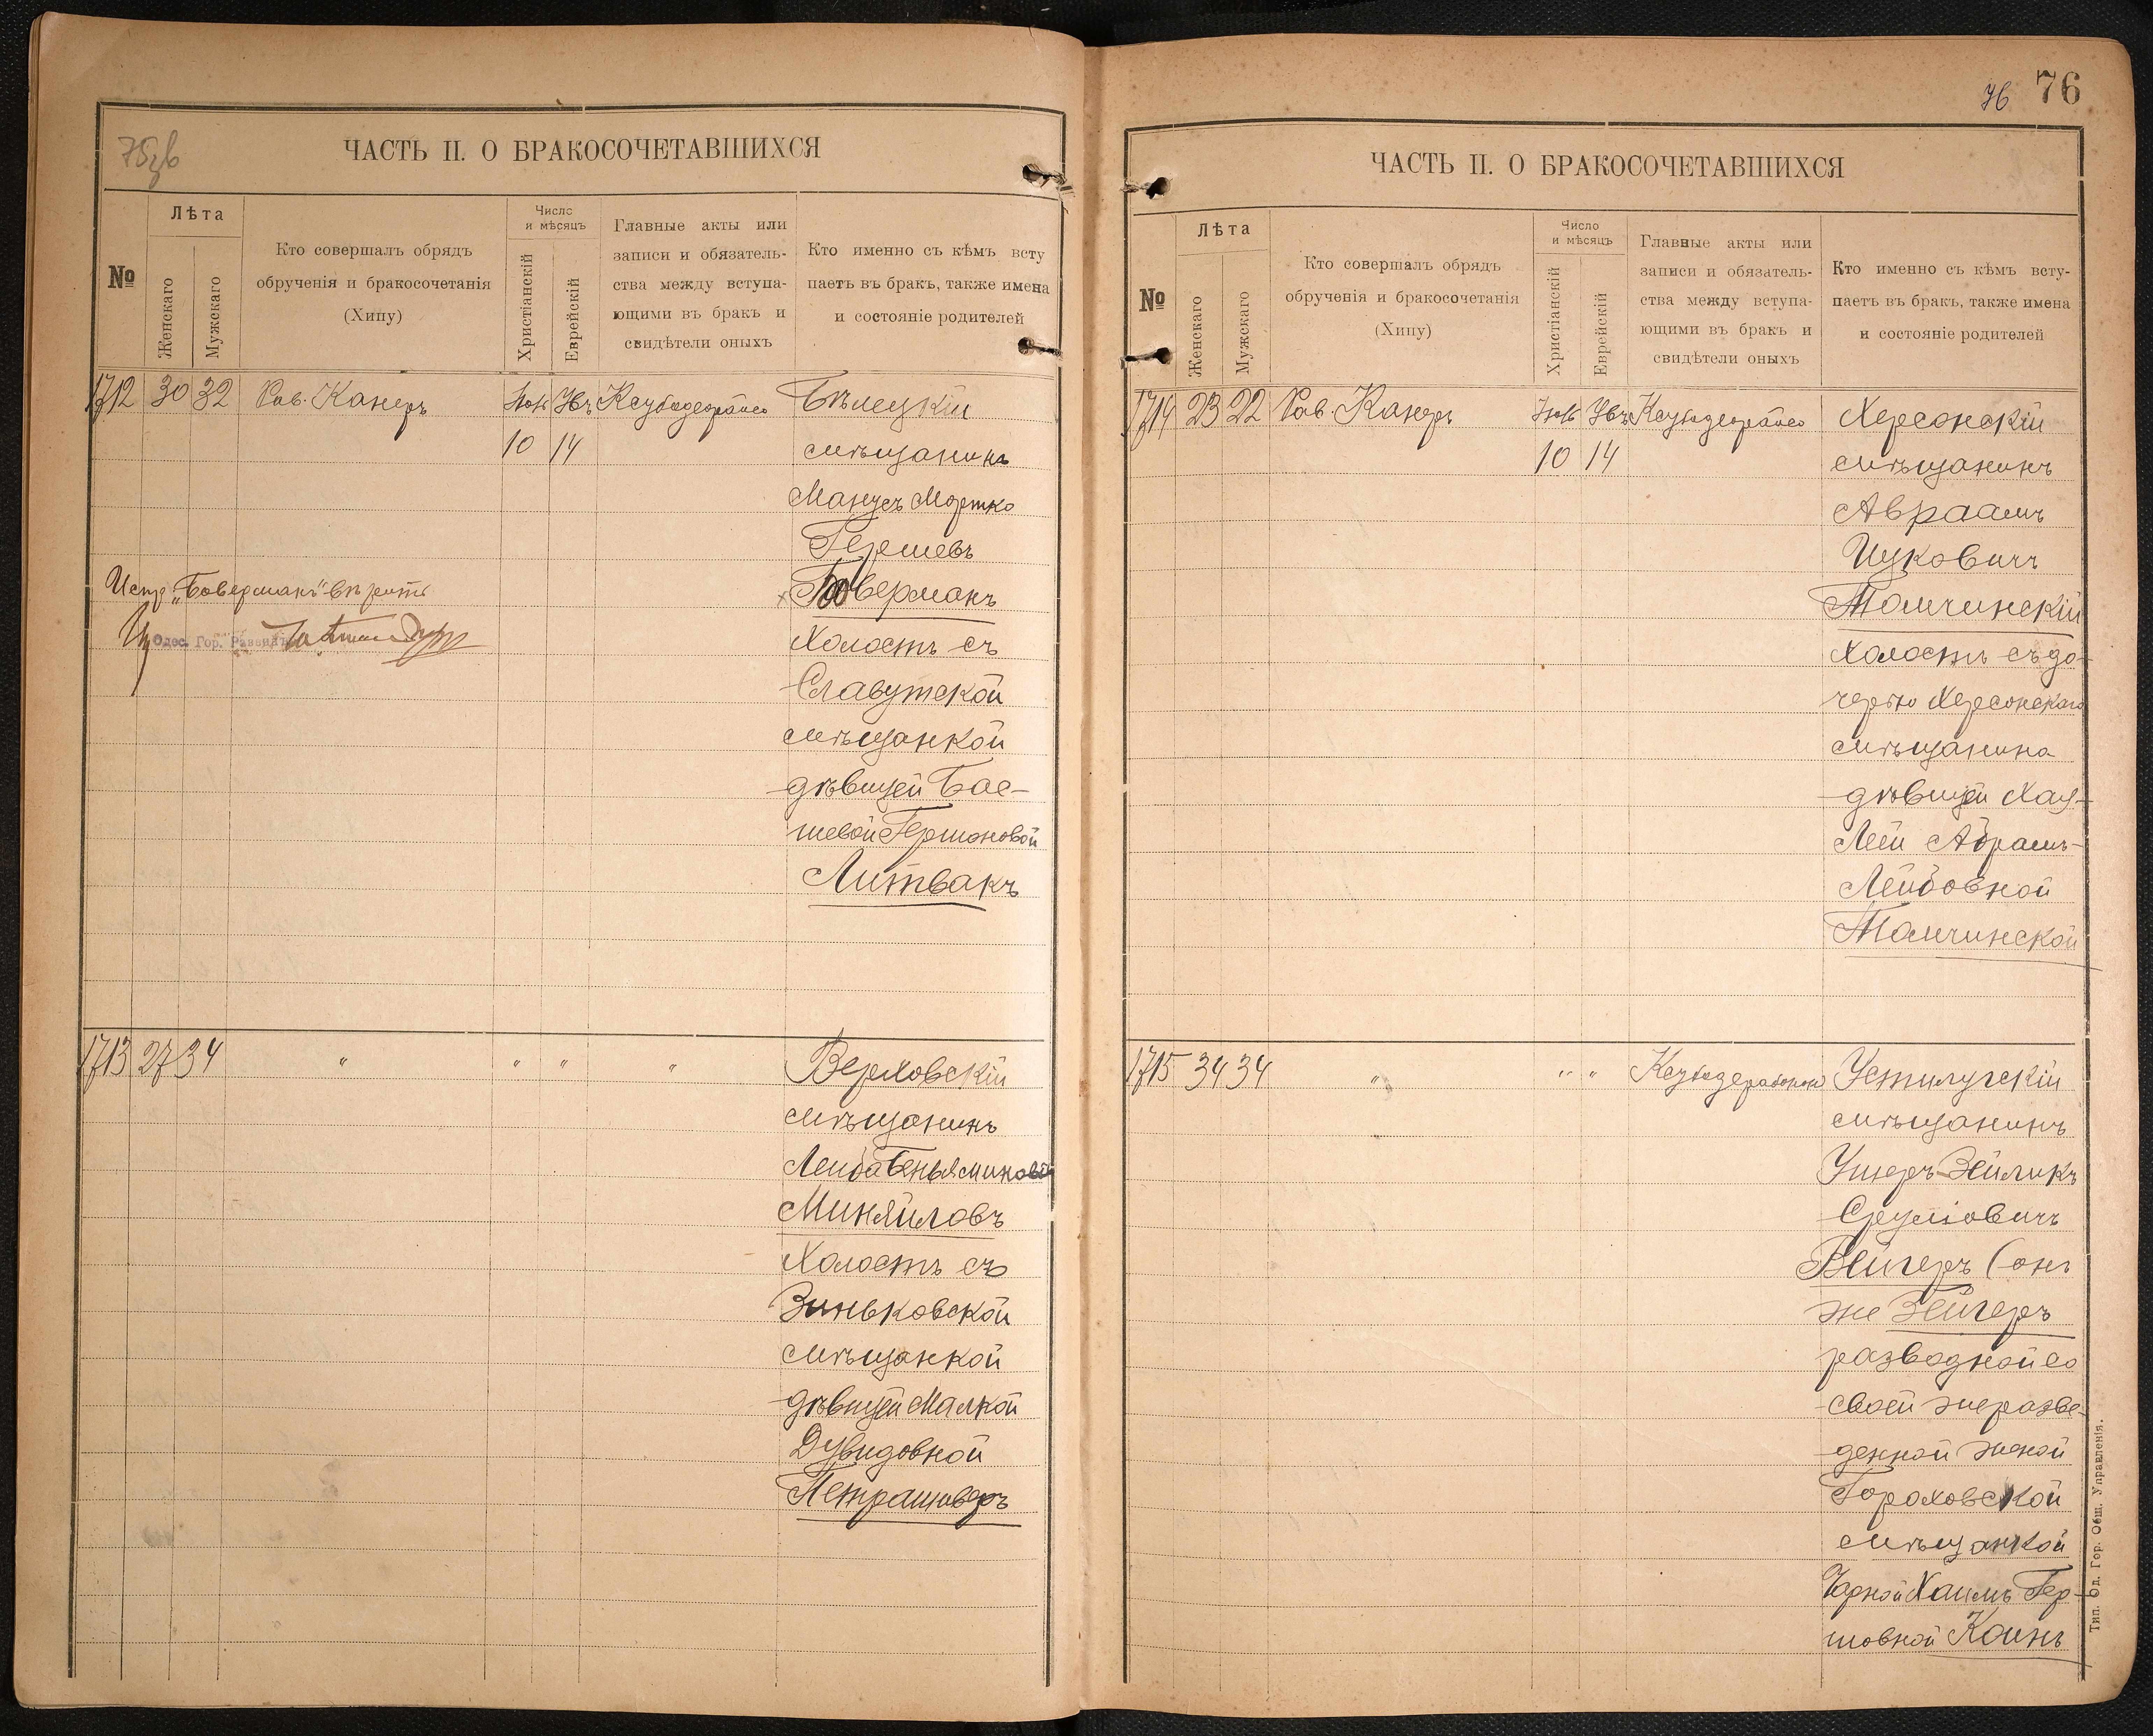 75зв
ЧАСТЬ II. О БРАКОСОЧЕТАВШИХСЯ
№
Лѣта
Женскаго
Мужскаго
Кто совершалъ обрядъ
обрученія и бракосочетанія
(Хипу)
Число
и мѣсяцъ
Христіанскій
Еврейскій
Главные акты или
записи и обязатель-
ства между вступа-
ющими въ бракъ и
свидѣтели оныхъ
Кто именно съ кѣмъ всту
паетъ въ бракъ, также имена
и состояніе родителей
1712 30 32 Рав. Канеръ
10 14
Бѣлецкій
мѣщанинъ
Манусъ Мортко
Гершевъ
Боверманъ
Холостъ съ
Славутской
мѣщанкой
дѣвицей Бас-
шевой Гершоновой
Литвакъ
Испр. „Боверманъ" вѣрить
Одес. Гор. Раввинъ
1713 27 34 " " " "
Верховскій
мѣщанинъ
Лейба Беньяминовъ
Миняйловъ
Холостъ съ
Зиньковской
мѣщанкой
дѣвицей Малкой
Дувидовной
Петрашиверъ
76 76
ЧАСТЬ II. О БРАКОСОЧЕТАВШИХСЯ
№
Лѣта
Женскаго
Мужскаго
Кто совершалъ обрядъ
обрученія и бракосочетанія
(Хипу)
Число
и мѣсяцъ
Христіанскій
Еврейскій
Главные акты или
записи и обязатель-
ства между вступа-
ющими въ бракъ и
свидѣтели оныхъ
Кто именно съ кѣмъ всту-
паетъ въ бракъ, также имена
и состояніе родителей
1714 23 22 Рав. Канеръ
10 14
Херсонскій
мѣщанинъ
Авраамъ
Ицковичъ
Томчинскій
Холостъ съ до-
черью Херсонскаго
мѣщанина
дѣвицей Хая-
Лей Абрамъ-
Лейбовной
Томчинской
1715 34 34 " " "
Устилугскій
мѣщанинъ
Ушеръ-Зейликъ
Сруліовичъ
Вейгеръ (онъ
же Зейгеръ
разводной со
своей же разве-
денной женой
Гороховской
мѣщанкой
Чарной Хаимъ Гер-
шовной Коинъ
Тип. Од. Гор. Общ. Управленія.